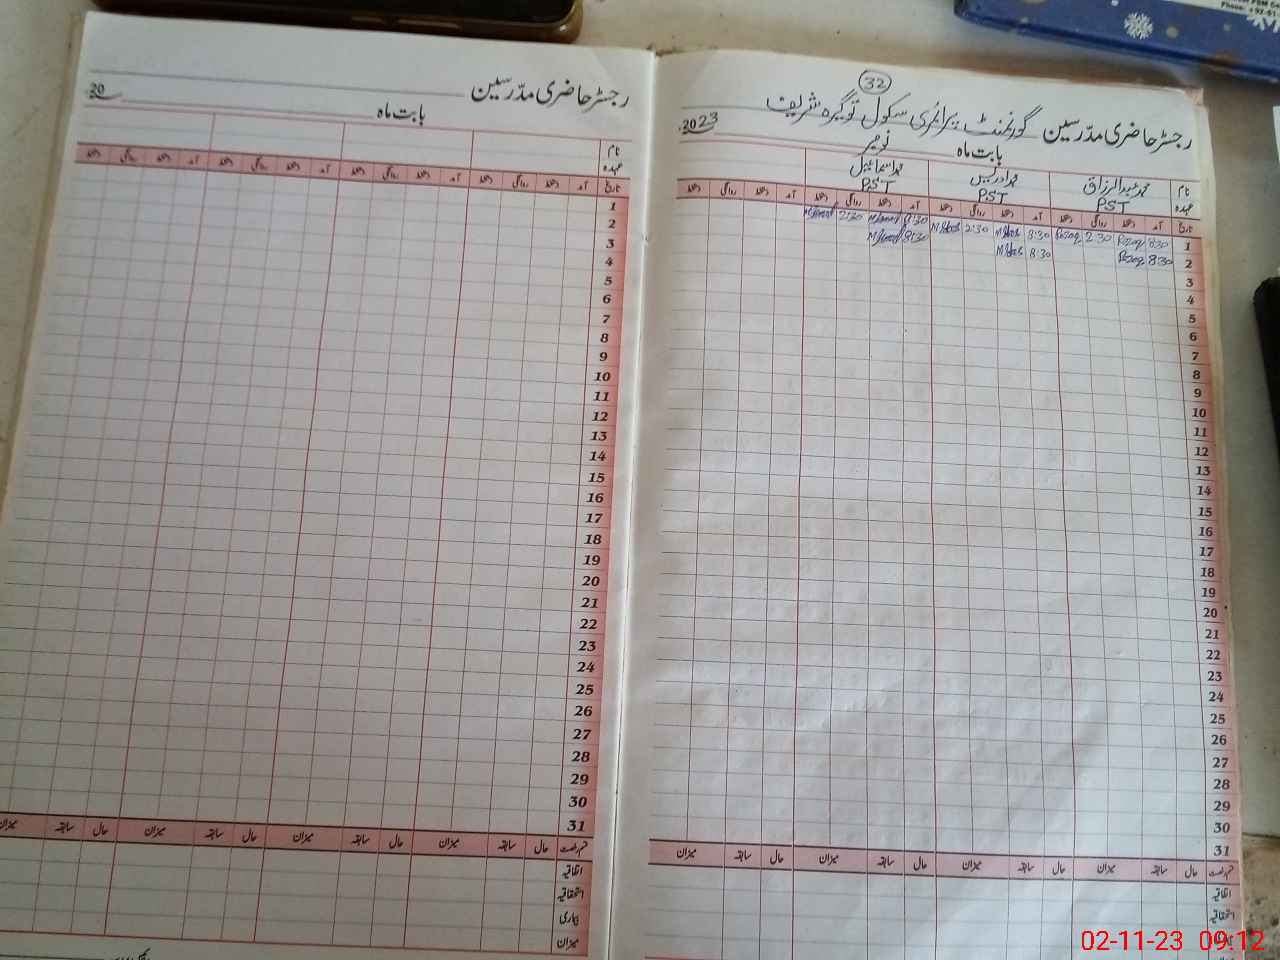 32
رجسٹر حاضری مدرسین گورنمنٹ پرائمری سکول توگیرہ شریف
بابت ماہ نومبر 2023
نام محمد عبدالرزاق محمد ادریس محمد اسماعیل
عہدہ PST PST PST
تاریخ آمد دستخط روانگی دستخط آمد دستخط روانگی دستخط آمد دستخط روانگی دستخط آمد دستخط روانگی دستخط
1 8:30 Razaq 2:30 Razaq 8:30 2:30 8:30 2:30
2 8:30 Razaq 8:30 8:30
3
4
5
6
7
8
9
10
11
12
13
14
15
16
17
18
19
20
21
22
23
24
25
26
27
28
29
30
31
قسم رخصت حال سابقہ میزان حال سابقہ میزان حال سابقہ میزان حال سابقہ میزان
اتفاقیہ
استحقاقیہ
رجسٹر حاضری مدرسین
بابت ماہ 20
نام
عہدہ
تاریخ آمد دستخط روانگی دستخط آمد دستخط روانگی دستخط آمد دستخط روانگی دستخط آمد دستخط روانگی دستخط
1
2
3
4
5
6
7
8
9
10
11
12
13
14
15
16
17
18
19
20
21
22
23
24
25
26
27
28
29
30
31
قسم رخصت حال سابقہ میزان حال سابقہ میزان حال سابقہ میزان حال سابقہ میزان
اتفاقیہ
استحقاقیہ
بیماری
میزان
02-11-23 09:12